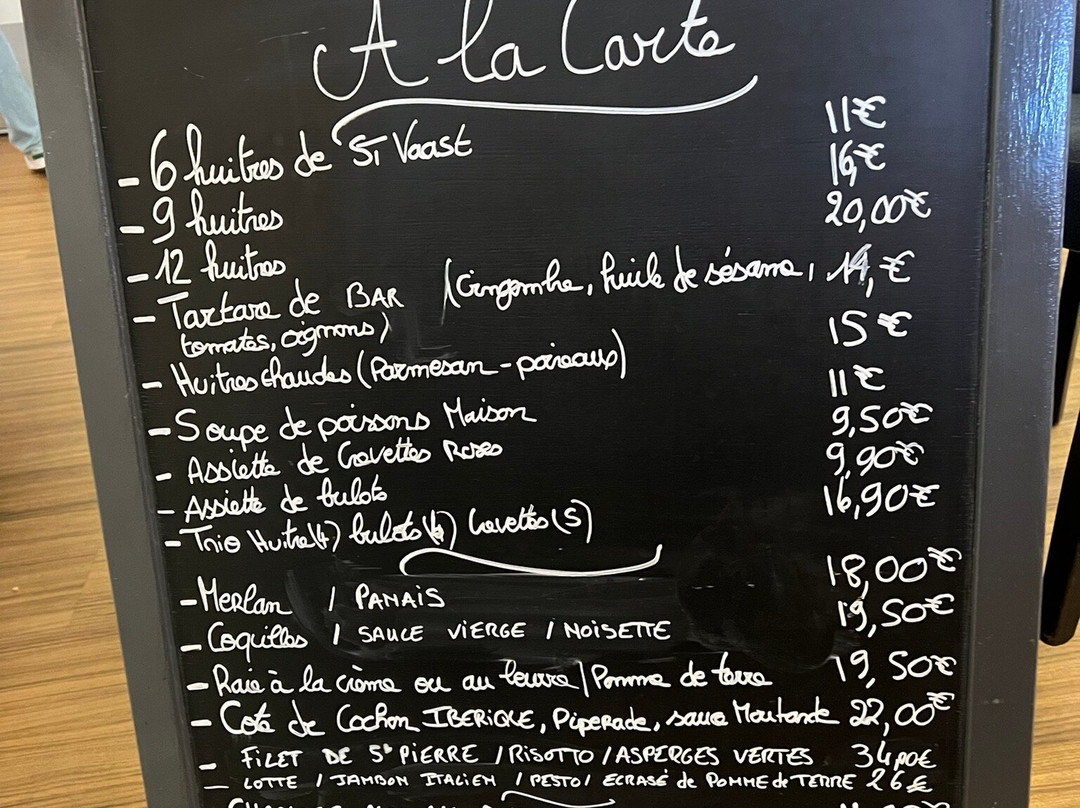 A la Carte
- 6 huitres de St Vaast 11€
- 9 huitres 16,€
- 12 huitres 20,00€
- Tartare de BAR (Gingembre, huile de sésame, 14,€
tomates, oignons)
- Huitres chaudes (Parmesan - poireaux) 15€
- Soupe de poissons Maison 11€
- Assiette de Crevettes Roses 9,50€
- Assiette de bulots 9,90€
- Trio Huitre(4) bulots(6) Crevettes(5) 16,90€
- Merlan / PANAIS 18,00€
- Coquilles / SAUCE VIERGE / NOISETTE 19,50€
- Raie à la crème ou au beurre / Pomme de terre 19,50€
- Cote de Cochon IBERIQUE, Piperade, sauce Moutarde 22,00€
- FILET DE St PIERRE / RISOTTO / ASPERGES VERTES 34,00€
- LOTTE / JAMBON ITALIEN / PESTO / ECRASÉ de POMME de TERRE 26€